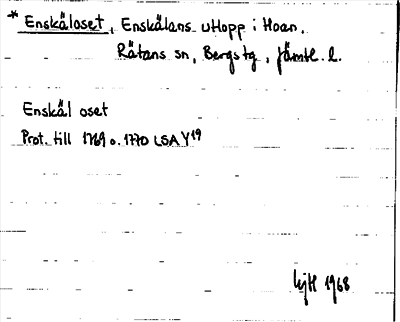 * Enskäloset, Enskälans utlopp i Hoan.
Rätans sn, Bergs tg, Jämtl. l.
Enskäl oset
Prot. till 1769 o. 1770 LSA Y19
1968